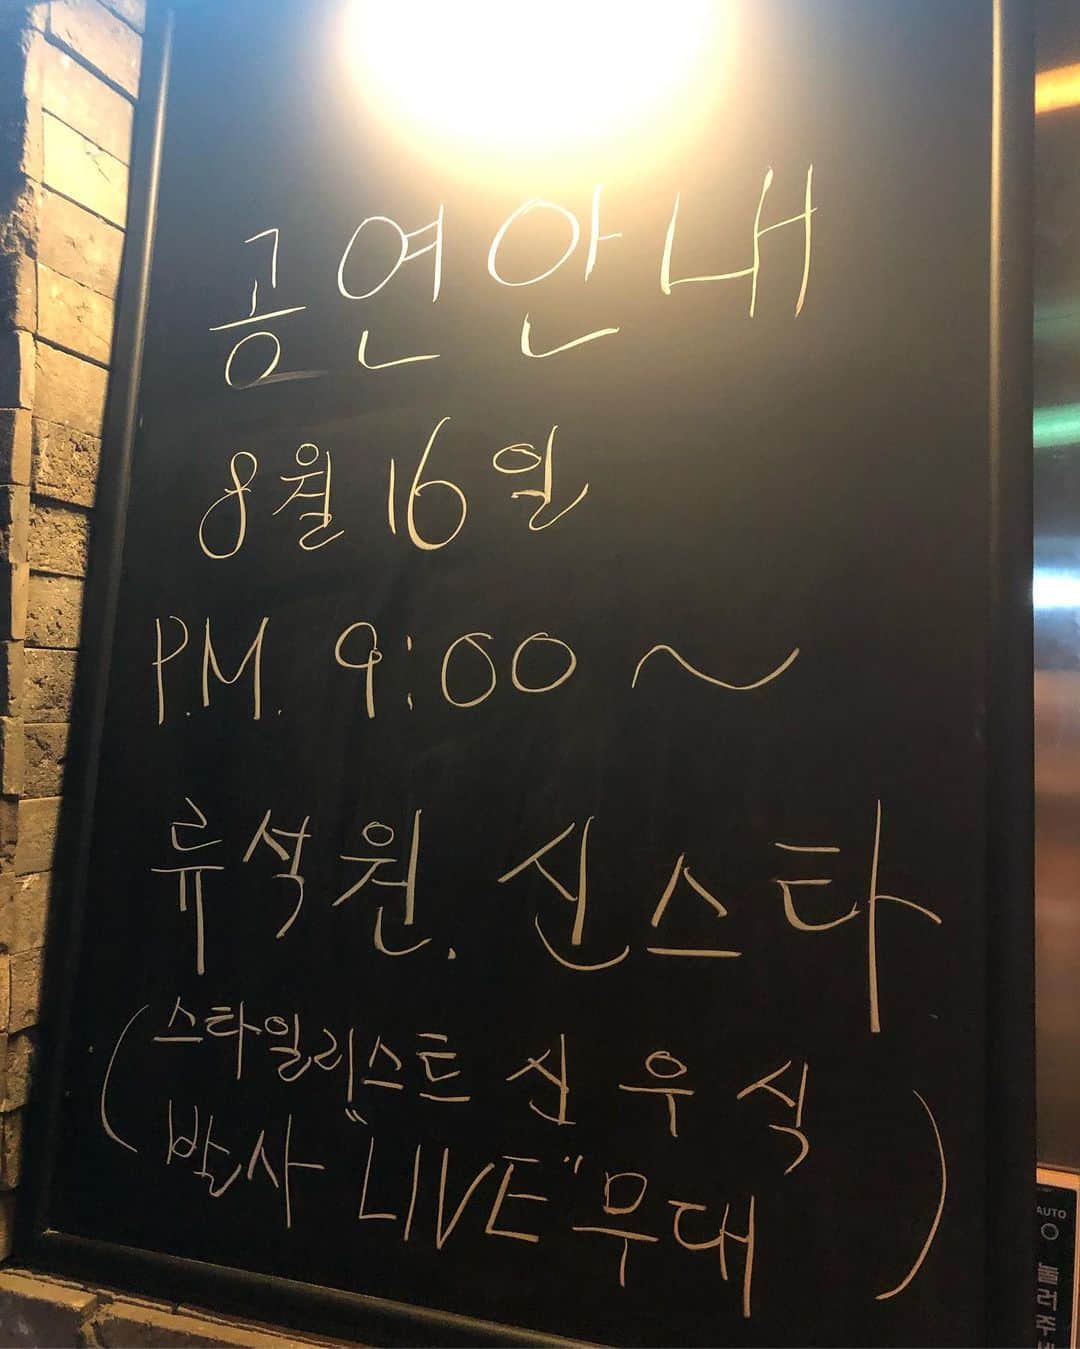 공연안내
8월 16일
P.M. 9:00~
류석원. 신스타
(스타일리스트 신우식
박사 "LIVE" 무대)
AUTO
눌러주세